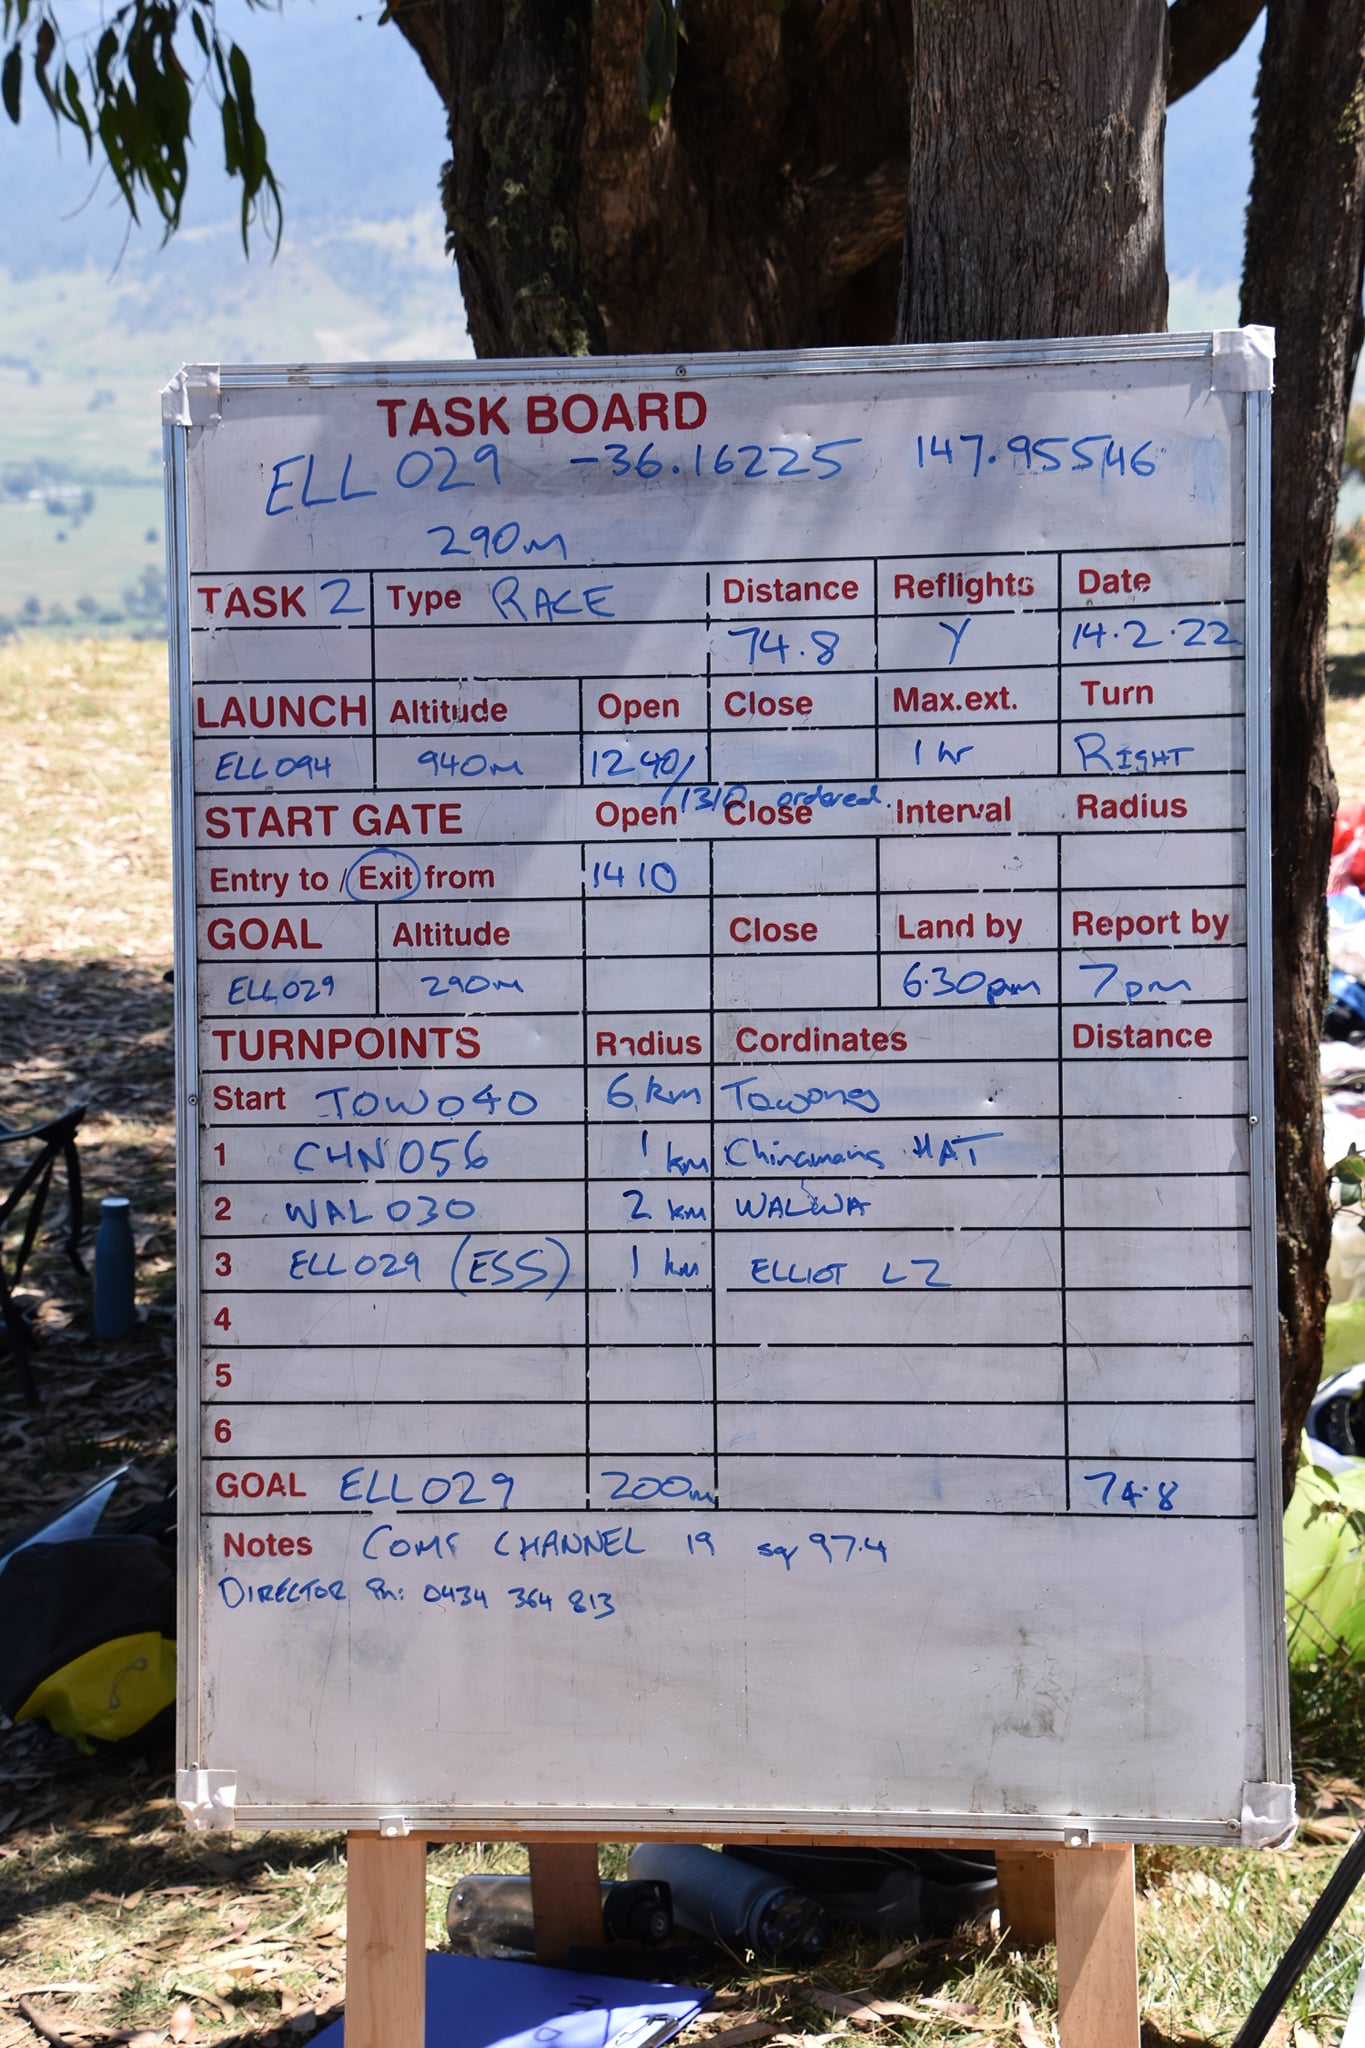 TASK BOARD
ELL 029 -36.16225 147.95546
290m
TASK 2 Type RACE Distance Reflights Date
74.8 Y 14.2.22
LAUNCH Altitude Open Close Max.ext. Turn
ELL 094 940m 1240/ 1 hr RIGHT
1310 ordered.
START GATE Open Close Interval Radius
Entry to / Exit from 1410
GOAL Altitude Close Land by Report by
ELL029 290m 6.30pm 7pm
TURNPOINTS Radius Cordinates Distance
Start TOW040 6 km Towong
1 CHN056 1 km Chinamans HAT
2 WAL030 2 km WALWA
3 ELL029 (ESS) 1 km ELLIOT LZ
4
5
6
GOAL ELL029 200m 74.8
Notes COMP CHANNEL 19 sq 97.4
DIRECTOR Ph: 0434 364 813